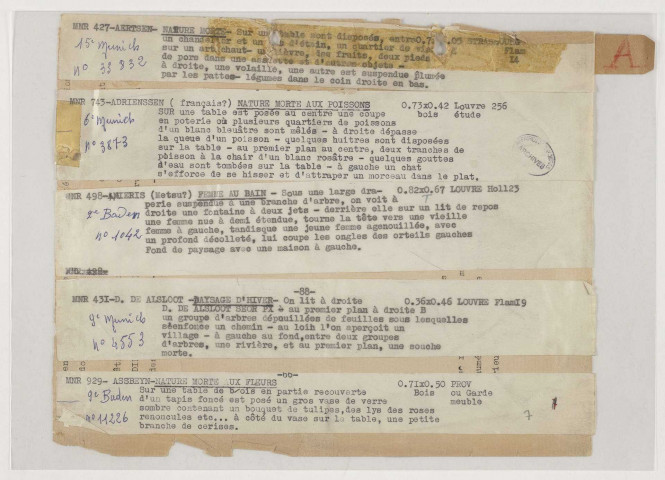 MNR 427-AERTSEN- NATURE MORTE- Sur une table sont disposés, entre
un chandelier et un d'étain, un quartier de
sur un artichaut- un lièvre, des fruits, deux pieds
de porc dans une assiette et d'autres objets -
à droite, une volaille, une autre est suspendue plumée
par les pattes- légumes dans le coin droit en bas.
Flam
14
15e Munich
n° 33832
A
MNR 743-ADRIENSSEN ( français?) NATURE MORTE AUX POISSONS 0.73x0.42 Louvre 256
SUR une table est posée au centre une coupe bois étude
en poterie où plusieurs quartiers de poissons
d'un blanc bleuâtre sont mêlés - à droite dépasse
la queue d'un poisson - quelques huitres sont disposées
sur la table - au premier plan au centre, deux tranches de
poisson à la chair d'un blanc rosâtre - quelques gouttes
d'eau sont tombées sur la table - à gauche un chat
s'efforce de se hisser et d'attraper un morceau dans le plat.
6e Munich
n° 3873
MNR 498-AMIERIS (Metsu?) FEMME AU BAIN - Sous une large dra- 0.82x0.67 LOUVRE Holl23
perie suspendue à une branche d'arbre, on voit à T
droite une fontaine à deux jets - derrière elle sur un lit de repos
une femme nue à demi étendue, tourne la tête vers une vieille
femme à gauche, tandisque une jeune femme agenouillée, avec
un profond décolleté, lui coupe les ongles des orteils gauches
Fond de paysage avec une maison à gauche.
2e Baden
n° 1042
MNR 498-
-88-
MNR 431-D. DE ALSLOOT -PAYSAGE D'HIVER- On lit à droite 0.36x0.46 LOUVRE Flam19
D. DE ALSLOOT SEOR FX - au premier plan à droite B
un groupe d'arbres dépouillées de feuilles sous lesquelles
séenfonce un chemin - au loin l'on aperçoit un
village - à gauche au fond,entre deux groupes
d'arbres, une rivière, et au premier plan, une souche
morte.
9e Munich
n° 4553
-66-
MNR 929- ASSREYN-NATURE MORTE AUX FLEURS 0.71x0.50 PROV
Sur une table de bois en partie recouverte Bois ou Garde
d'un tapis foncé est posé un gros vase de verre meuble
sombre contenant un bouquet de tulipes,des lys des roses
renoncules etc... à côté du vase sur la table, une petite
branche de cerises.
9e Baden
n° 11226
7